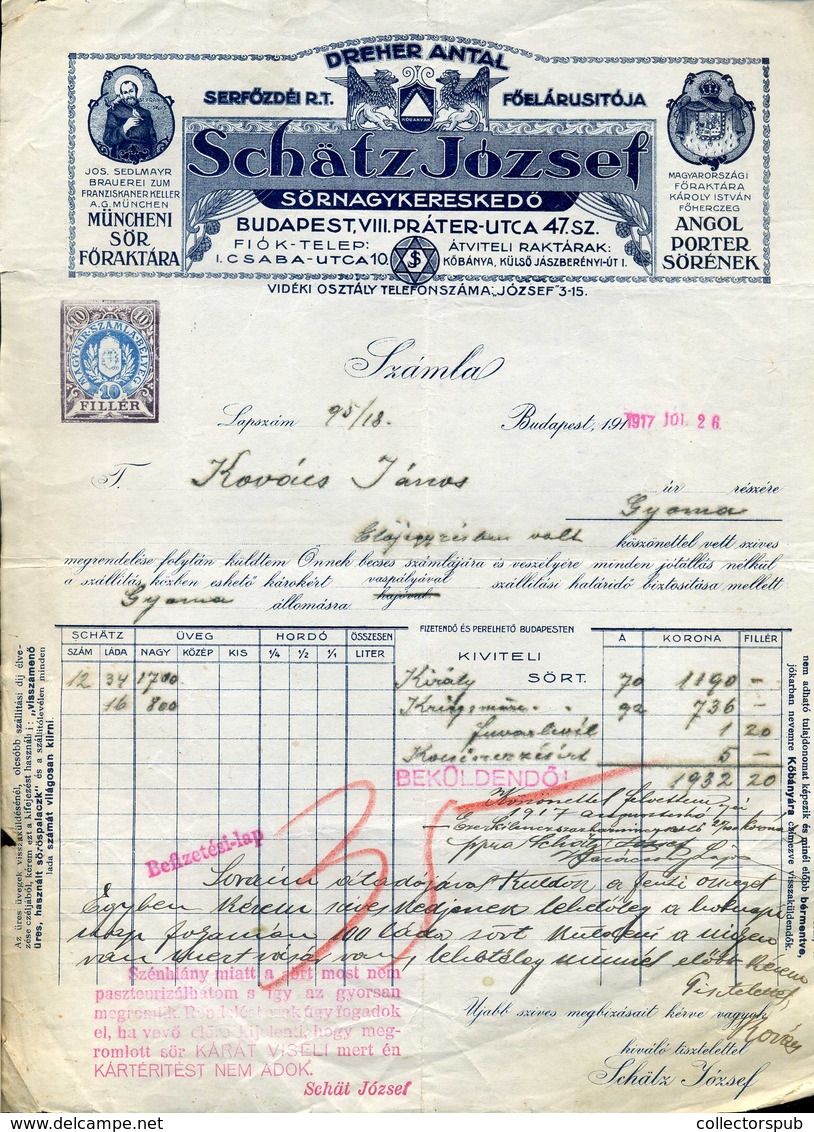 DREHER ANTAL
SERFŐZDÉI R.T. FŐELÁRUSITÓJA
KŐBÁNYÁN
Schätz József
SÖRNAGYKERESKEDŐ
BUDAPEST, VIII. PRÁTER-UTCA 47. SZ.
FIÓK-TELEP: ÁTVITELI RAKTÁRAK:
I. CSABA-UTCA 10. KŐBÁNYA, KÜLSŐ JÁSZBERÉNYI-ÚT 1.
VIDÉKI OSZTÁLY TELEFONSZÁMA: „JÓZSEF" 3-15.
JOS. SEDLMAYR
BRAUEREI ZUM
FRANZISKANER KELLER
A.G. MÜNCHEN
MÜNCHENI
SÖR
FŐRAKTÁRA
MAGYARORSZÁGI
FŐRAKTÁRA
KÁROLY ISTVÁN
FŐHERCZEG
ANGOL
PORTER
SÖRÉNEK
10 10
MAGY. KIR. SZÁMLA-BÉLYEG
10
FILLÉR
Számla
Lapszám 95/18. Budapest, 191 1917 JUL 26
T. Kovács János úr részére
Gyoma
Előjegyzésben volt köszönettel vett szives
megrendelése folytán küldtem Önnek becses számlájára és veszélyére minden jótállás nélkül
a szállítás közben eshető károkért vaspályával szállítási határidő biztosítása mellett
hajóval
Gyoma állomásra
SCHÄTZ ÜVEG HORDÓ ÖSSZESEN FIZETENDŐ ÉS PERELHETŐ BUDAPESTEN Á KORONA FILLÉR
SZÁM LÁDA NAGY KÖZÉP KIS 1/4 1/2 1/1 LITER KIVITELI SÖRT.
12 34 1700 Király 70 1190 –
16 800 92 736 –
Fuvarlevél 1 20
5 –
BEKÜLDENDŐ! 1932 20
Köszönettel felvettem
1917 augusztus
ppra Schätz József
Befizetési-lap
35
Soraim átadójával küldöm a fenti összeget
Egyben kérem szíveskedjenek lehetőleg a holnapi
nap folyamán 100 láda sört küldeni
van mert vásár van, lehetőleg minnél előbb kérem
Tisztelettel,
Kovács
Szénhiány miatt a sört most nem
paszteurizálhatom s így az gyorsan
megromlik. Rendelést csak úgy fogadok
el, ha vevő előre kijelenti, hogy meg-
romlott sör KÁRÁT VISELI mert én
KÁRTÉRITÉST NEM ADOK.
Schät József
Ujabb szives megbizásait kérve vagyok
kiváló tisztelettel
Schätz József
Az üres üvegek visszaküldésénél, olcsóbb szállítási díj élve-
zése czéljából, kérem ezt a kifejezést használni: „visszamenő
üres, használt söröspalaczk" és a szállítólevélen minden
láda számát világosan kiirni.
nem adható tulajdonomat képezik és minél előbb bérmentve,
jókarban nevemre Kőbányára czimezve visszaküldendők.
collectorspub.com